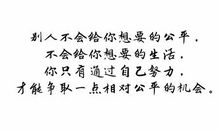 别人不会给你想要的公平，
不会给你想要的生活，
你只有通过自己努力，
才能争取一点相对公平的机会。